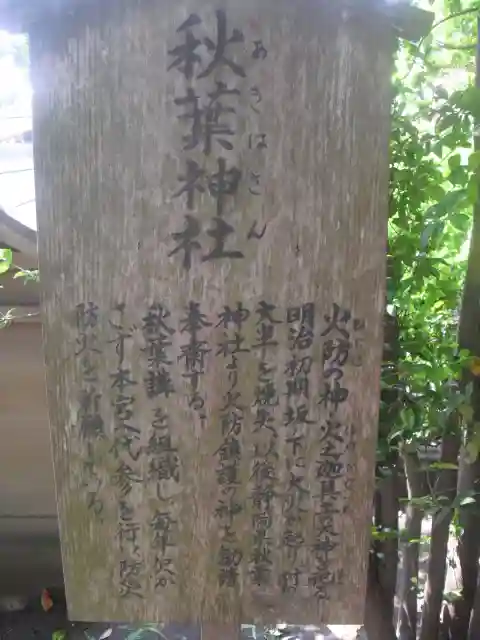 秋葉神社
あきはさん
火防の神 火之迦具土大神を祀り
明治初期坂下に大火が起り町の
大半を焼失、以後静岡県秋葉
神社より火防鎮護の神を勧請
奉斎する。
秋葉講を組織し毎年欠か
さず本宮へ代参を行い防火
防火を祈願している。